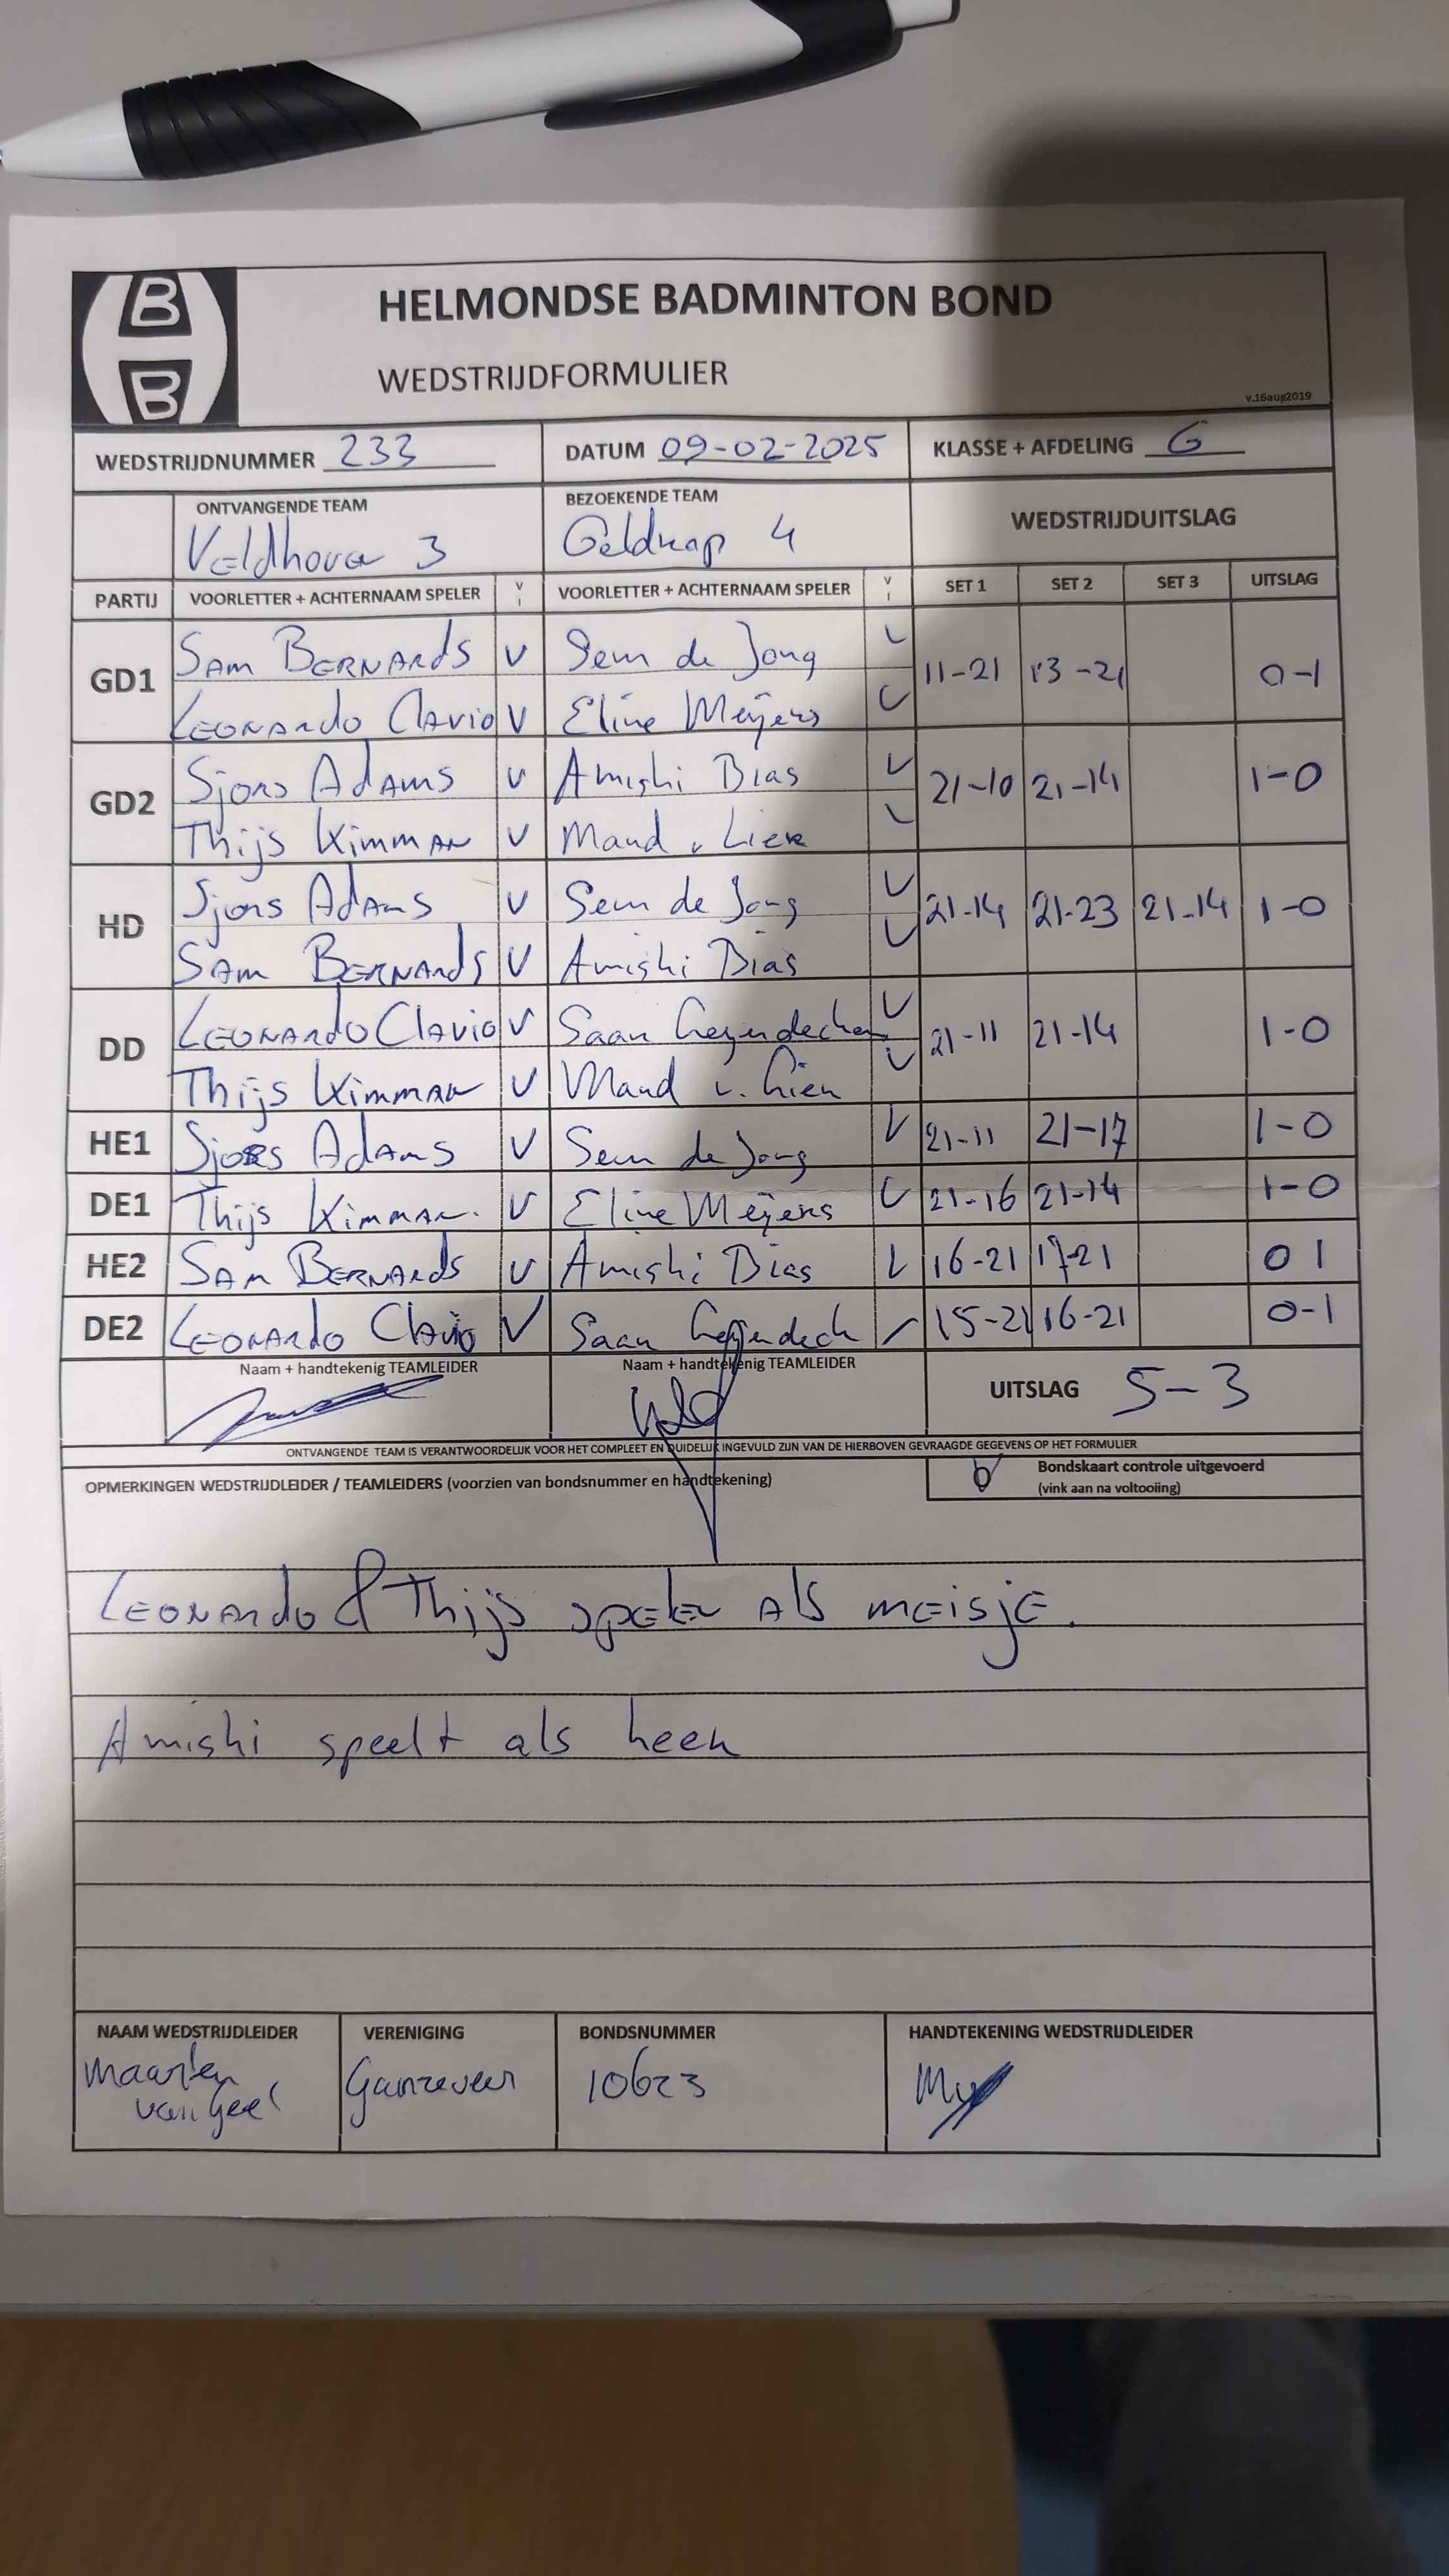 B
B
HELMONDSE BADMINTON BOND
WEDSTRIJDFORMULIER
v.16aug2019
WEDSTRIJDNUMMER 233 DATUM 09-02-2025 KLASSE + AFDELING G
ONTVANGENDE TEAM BEZOEKENDE TEAM WEDSTRIJDUITSLAG
Veldhoven 3 Geldrop 4
PARTIJ VOORLETTER + ACHTERNAAM SPELER V VOORLETTER + ACHTERNAAM SPELER V SET 1 SET 2 SET 3 UITSLAG
GD1 Sam Bernards V Sem de Jong V 11-21 13-21 0-1
Leonardo Clavio V Eline Meijers V
GD2 Sjors Adams V Amishi Bias V 21-10 21-14 1-0
Thijs Kimman V Maud v Lier V
HD Sjors Adams V Sem de Jong V 21-14 21-23 21-14 1-0
Sam Bernards V Amishi Bias V
DD Leonardo Clavio V Saan V 21-11 21-14 1-0
Thijs Kimman V Maud v. Lier V
HE1 Sjors Adams V Sem de Jong V 21-11 21-17 1-0
DE1 Thijs Kimman. V Eline Meijers V 21-16 21-14 1-0
HE2 Sam Bernards V Amishi Bias V 16-21 17-21 0 1
DE2 Leonardo Clavio V Saan 15-21 16-21 0-1
Naam + handtekenig TEAMLEIDER Naam + handtekenig TEAMLEIDER UITSLAG 5-3
ONTVANGENDE TEAM IS VERANTWOORDELIJK VOOR HET COMPLEET EN DUIDELIJK INGEVULD ZIJN VAN DE HIERBOVEN GEVRAAGDE GEGEVENS OP HET FORMULIER
OPMERKINGEN WEDSTRIJDLEIDER / TEAMLEIDERS (voorzien van bondsnummer en handtekening) Bondskaart controle uitgevoerd
(vink aan na voltooiing)
Leonardo & Thijs spelen als meisje.
Amishi speelt als heer
NAAM WEDSTRIJDLEIDER VERENIGING BONDSNUMMER HANDTEKENING WEDSTRIJDLEIDER
Maarten van Geel Ganzeveer 10623